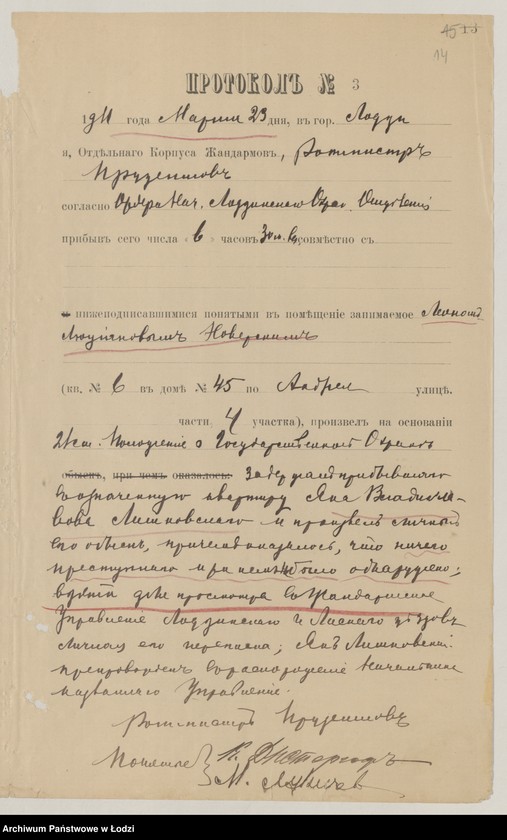 45
14
ПРОТОКОЛЪ № 3
1911 года Марта 23 дня, въ гор. Лодзи
я, Отдѣльнаго Корпуса Жандармовъ, Ротмистръ
согласно Ордера Нач. Лодзинскаго Охран. Отдѣленія
прибывъ сего числа в 6 часовъ 30 м. в. совмѣстно съ
и нижеподписавшимися понятыми въ помѣщеніе занимаемое Леономъ
Люціановымъ
(кв. № 6 въ домѣ № 45 по Андрея улицѣ.
части, 4 участка), произвелъ на основаніи
21 ст. Положенія о Государственной Охранѣ
обыскъ, при чемъ оказалось: Задержалъ прибывшаго
въ означенную квартиру Яна Владисла-
вова Лишковскаго и произвелъ личный
его обыскъ, причемъ оказалось, что ничего
преступнаго при немъ не было обнаружено;
взята для просмотра въ Жандармское
Управленіе Лодзинскаго и Ласкаго уѣздовъ
личная его переписка; Янъ Лишковскій
препровожденъ въ распоряженіе Начальника
названнаго Управленія.
Ротмистръ
Понятые
Archiwum Państwowe w Łodzi